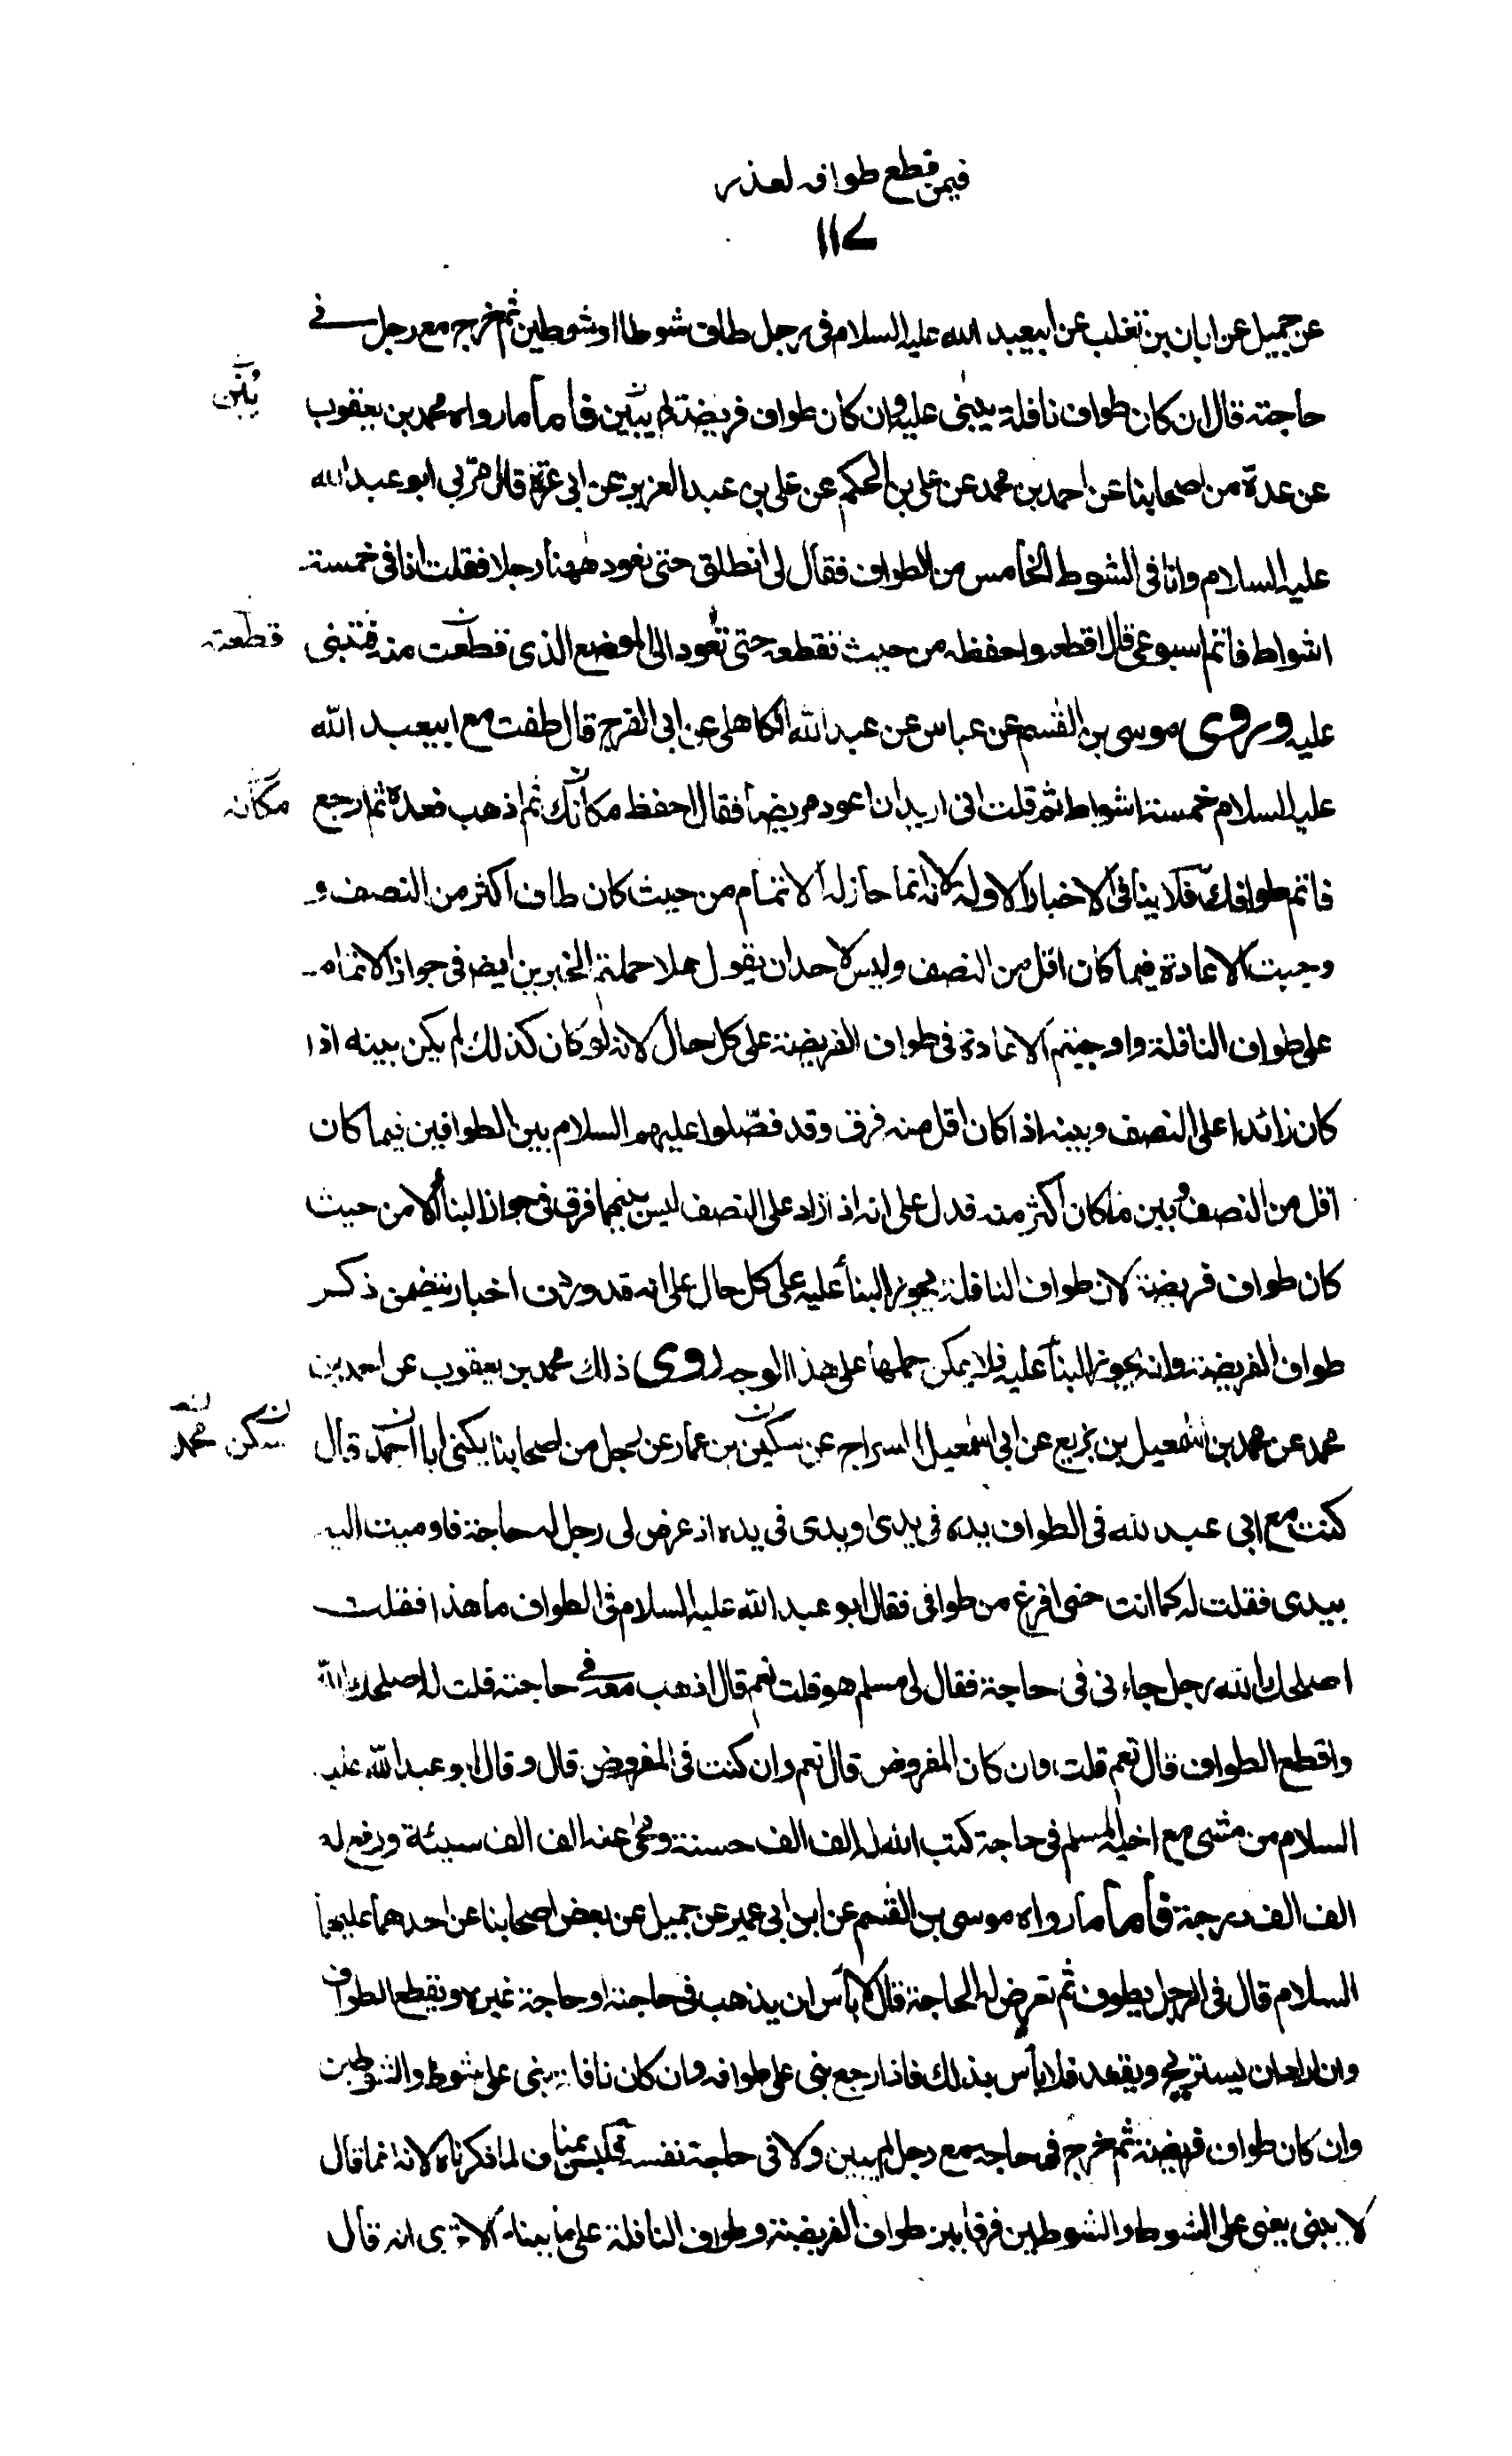 فيمن قطع طوافه لعذر
١١٧
عن جميل عن ابان بن تغلب عن ابيعبد الله عليه السلام فى رجل طاف شوطا او شوطين ثم خرج مع رجل فى
حاجته قال ان كان طواف نافلة يبنى عليه وان كان طواف فريضة لم يبن فاما ما رواه محمد بن يعقوب
يبن
عن عدة من اصحابنا عن احمد بن محمد عن على بن الحكم عن على بن عبد العزيز عن ابى غرة قال مر بى ابو عبد الله
عليه السلام وانا فى الشوط الخامس من الطواف فقال لى انطلق حتى نعود ههنا رجلا فقلت انا فى خمسة
اشواط فاتم اسبوعى قال اقطعه واحفظه من حيث تقطعه حتى تعود الى الموضع الذى قطعت منه فتبنى
قطعته
عليه وروى موسى بن القسم عن عباس عن عبد الله الكاهلى عن ابى الفرج قال طفت مع ابيعبد الله
عليه السلام خمسة اشواط ثم قلت انى اريد ان اعود مريضا فقال احفظ مكانك ثم اذهب فعده ثم ارجع
مكانه
فاتم طوافك فلا ينافى الاخبار الاولة لانه انما جاز له الاتمام من حيث كان طاف اكثر من النصف و
وجبت الاعادة فيما كان اقل من النصف وليس لاحد ان يقول هلا حملتم الخبرين ايضا فى جواز الاتمام
على طواف النافلة واوجبتم الاعادة فى طواف الفريضة على كل حال لانه لو كان كذلك لم يكن بينه اذا
كان زائدا على النصف وبينه اذا كان اقل منه فرق وقد فصلوا عليهم السلام بين الطوافين فيما كان
اقل من النصف وبين ما كان اكثر منه فدل على انه اذا زاد على النصف ليس بينهما فرق فى جواز البنأ الا من حيث
كان طواف فريضة لان طواف النافلة يجوز البنأ عليه على كل حال على انه قد وردت اخبار يتضمن ذكر
طواف الفريضة وانه يجوز البنأ عليه فلا يمكن حملها على هذا الوجه روى ذلك محمد بن يعقوب عن احمد بن
محمد عن محمد بن اسمعيل بن بزيع عن ابى اسمعيل السراج عن سكين بن عمار عن رجل من اصحابنا يكنى ابا احمد قال
سكن محمد
كنت مع ابى عبد الله فى الطواف يده فى يدى ويدى فى يده اذ عرض لى رجل له حاجة فاوميت اليه
بيدى فقلت له كما انت حتى افرغ من طوافى فقال ابو عبد الله عليه السلام فى الطواف ما هذا فقلت
اصلحك الله رجل جاءنى فى حاجة فقال لى مسلم هو قلت نعم قال اذهب معه فى حاجته قلت له اصلحك الله
واقطع الطواف قال نعم قلت وان كان المفروض قال نعم وان كنت فى المفروض قال وقال ابو عبد الله عليه
السلام من مشى مع اخيه المسلم فى حاجة كتب الله له الف الف حسنة ومحى عنه الف الف سيئة ورفع له
الف الف درجة فاما ما رواه موسى بن القسم عن ابن ابى عمير عن جميل عن بعض اصحابنا عن احدهما عليهما
السلام قال فى الرجل يطوف ثم تعرض له الحاجة قال لا بأس ان يذهب فى حاجته او حاجة غيره ويقطع الطواف
وان اراد ان يستريح ويقعد فلا بأس بذلك فاذا رجع بنى على طوافه وان كان نافلة بنى على شوط والشوطين
وان كان طواف فريضة ثم خرج فى حاجة مع رجل لم يبن ولا فى حاجة نفسه فليس بمناف لما ذكرناه لانه انما قال
لا يبنى يعنى على الشوط والشوطين فرقا بين طواف الفريضة وطواف النافلة على ما بيناه الا ترى انه قال